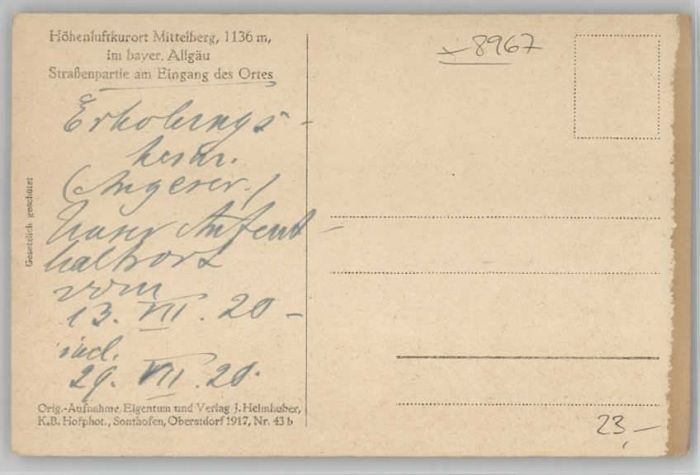 Höhenluftkurort Mittelberg, 1136 m,
im bayer. Allgäu
Straßenpartie am Eingang des Ortes
8967
Erholungs-
heim.
(Angerer.)
Unser Aufent-
haltsort
vom
13. VII. 20 -
incl.
29. VII. 20.
Gesetzlich geschützt
Orig.-Aufnahme, Eigentum und Verlag J. Heimhuber,
K.B. Hofphot., Sonthofen, Oberstdorf 1917, Nr. 43 b
23,-